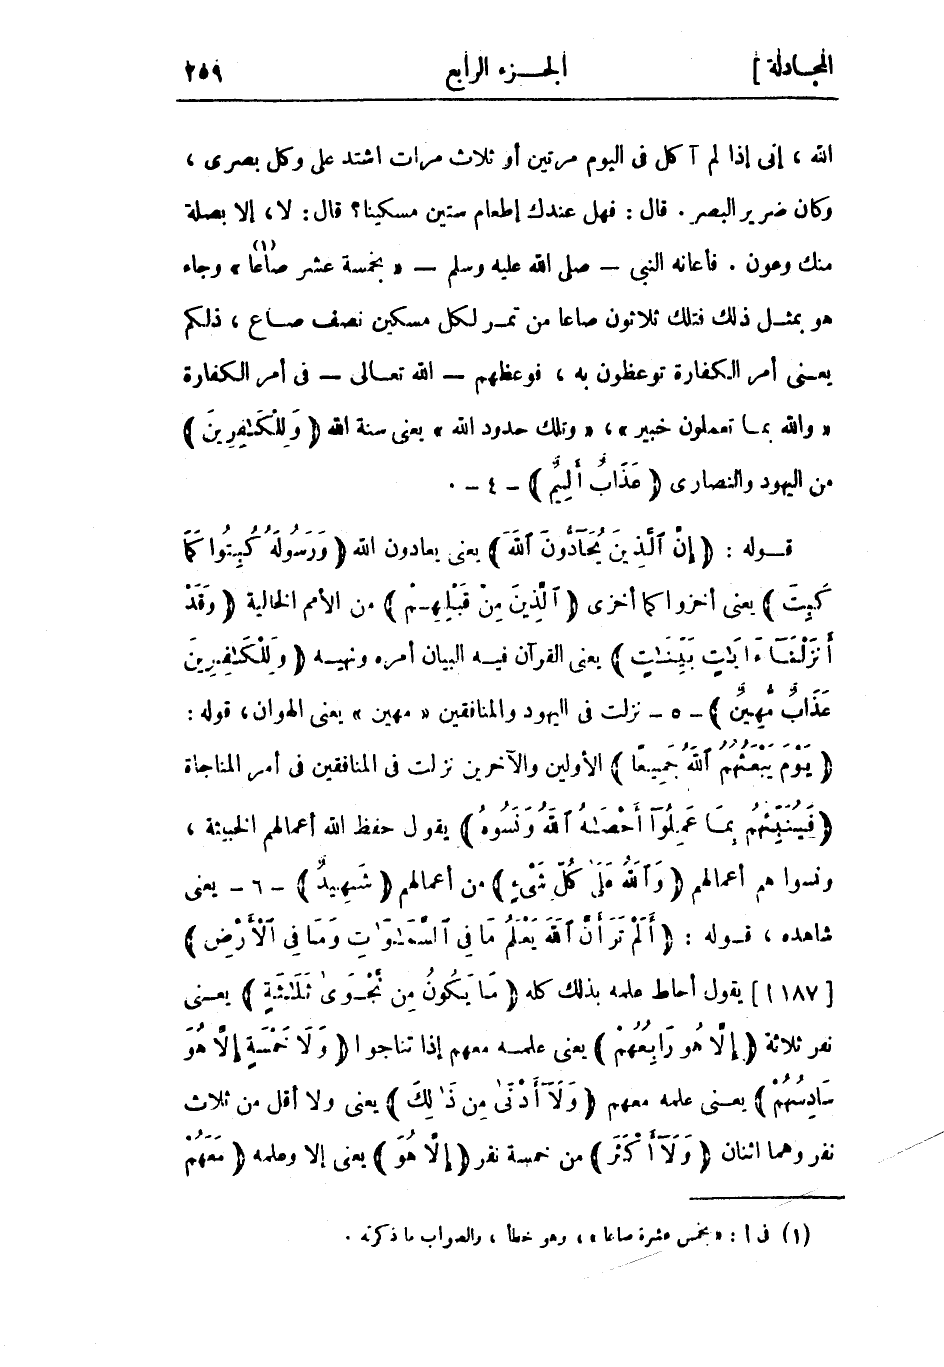 المجادلة ]
الجزء الرابع
٢٥٩
الله ، إنى إذا لم آكل فى اليوم مرتين أو ثلاث مرات اشتد على وكل بصرى ،
وكان ضرير البصر . قال : فهل عندك إطعام ستين مسكينا؟ قال : لا ، إلا بصلة
منك وعون . فأعانه النبى — صلى الله عليه وسلم — « بخمسة عشر صاعا(١) » وجاء
هو بمثل ذلك فتلك ثلاثون صاعا من تمر لكل مسكين نصف صاع ، ذلكم
يعنى أمر الكفارة توعظون به ، فوعظهم — الله تعالى — فى أمر الكفارة
« والله بما تعملون خبير » ، « وتلك حدود الله » يعنى سنة الله ﴿ وَلِلْكَـٰفِرِينَ ﴾
من اليهود والنصارى ﴿ عَذَابٌ أَلِيمٌ ﴾ - ٤ - .
قوله : ﴿ إِنَّ ٱلَّذِينَ يُحَآدُّونَ ٱللَّهَ ﴾ يعنى يعادون الله ﴿ وَرَسُولَهُ كُبِتُوا كَمَا
كُبِتَ ﴾ يعنى أخزوا كما أخزى ﴿ ٱلَّذِينَ مِنْ قَبْلِهِمْ ﴾ من الأمم الخالية ﴿ وَقَدْ
أَنزَلْنَآ ءَايَاتٍ بَيِّنَـٰتٍ ﴾ يعنى القرآن فيه البيان أمره ونهيه ﴿ وَلِلْكَـٰفِرِينَ
عَذَابٌ مُّهِينٌ ﴾ - ٥ - نزلت فى اليهود والمنافقين « مهين » يعنى الهوان ، قوله :
﴿ يَوْمَ يَبْعَثُهُمُ ٱللَّهُ جَمِيعًا ﴾ الأولين والآخرين نزلت فى المنافقين فى أمر المناجاة
﴿ فَيُنَبِّئُهُم بِمَا عَمِلُوٓا أَحْصَـٰهُ ٱللَّهُ وَنَسُوهُ ﴾ يقول حفظ الله أعمالهم الخبيثة ،
ونسوا هم أعمالهم ﴿ وَٱللَّهُ عَلَىٰ كُلِّ شَىْءٍ ﴾ من أعمالهم ﴿ شَهِيدٌ ﴾ - ٦ - يعنى
شاهده ، قوله : ﴿ أَلَمْ تَرَ أَنَّ ٱللَّهَ يَعْلَمُ مَا فِي ٱلسَّمَـٰوَٰتِ وَمَا فِي ٱلْأَرْضِ ﴾
[ ١٨٧ أ ] يقول أحاط علمه بذلك كله ﴿ مَا يَكُونُ مِن نَّجْوَىٰ ثَلَـٰثَةٍ ﴾ يعنى
نفر ثلاثة ﴿ إِلَّا هُوَ رَابِعُهُمْ ﴾ يعنى علمه معهم إذا تناجوا ﴿ وَلَا خَمْسَةٍ إِلَّا هُوَ
سَادِسُهُمْ ﴾ يعنى علمه معهم ﴿ وَلَآ أَدْنَىٰ مِن ذَٰلِكَ ﴾ يعنى ولا أقل من ثلاث
نفر وهما اثنان ﴿ وَلَآ أَكْثَرَ ﴾ من خمسة نفر ﴿ إِلَّا هُوَ ﴾ يعنى إلا وعلمه ﴿ مَعَهُمْ
(١) فى أ : « بخمس عشرة صاعا » ، وهو خطأ ، والصواب ما ذكرته .